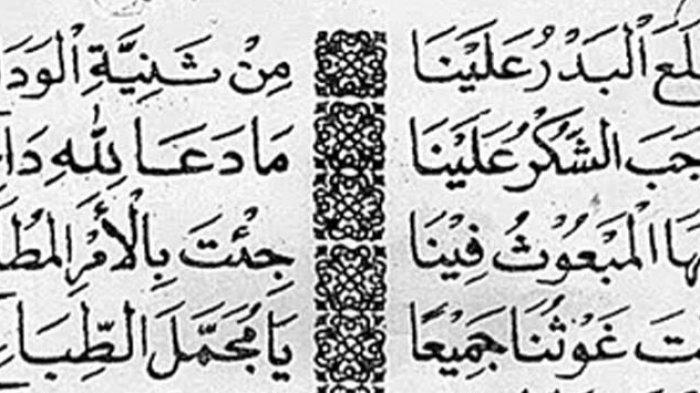 لَعَ الْبَدْرُ عَلَيْنَا مِنْ ثَنِيَّةِ الْوَدَا
جَبَ الشُّكْرُ عَلَيْنَا مَا دَعَا لِلّٰهِ دَاعِ
هَا الْمَبْعُوْثُ فِيْنَا جِئْتَ بِالْأَمْرِ الْمُطَا
تَ غَوْثُنَا جَمِيْعًا يَا مُجَمَّلَ الطِّبَاعِ